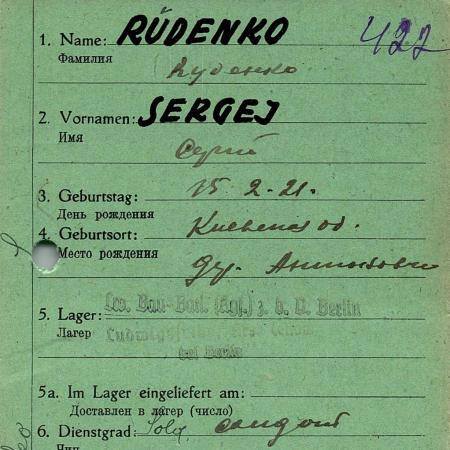 1. Name: RÜDENKO 422
Фамилия Руденко
2. Vornamen: SERGEJ
Имя Сергій
3. Geburtstag: 15 2-21.
День рождения
4. Geburtsort: Киевская об.
Место рождения дер.
5. Lager: Bau-Batl. (Kgf.) z. b. V. Berlin
Лагер
bei Berlin
5a. Im Lager eingeliefert am:
Доставлен в лагер (число)
6. Dienstgrad: Sold. солдат
Чин